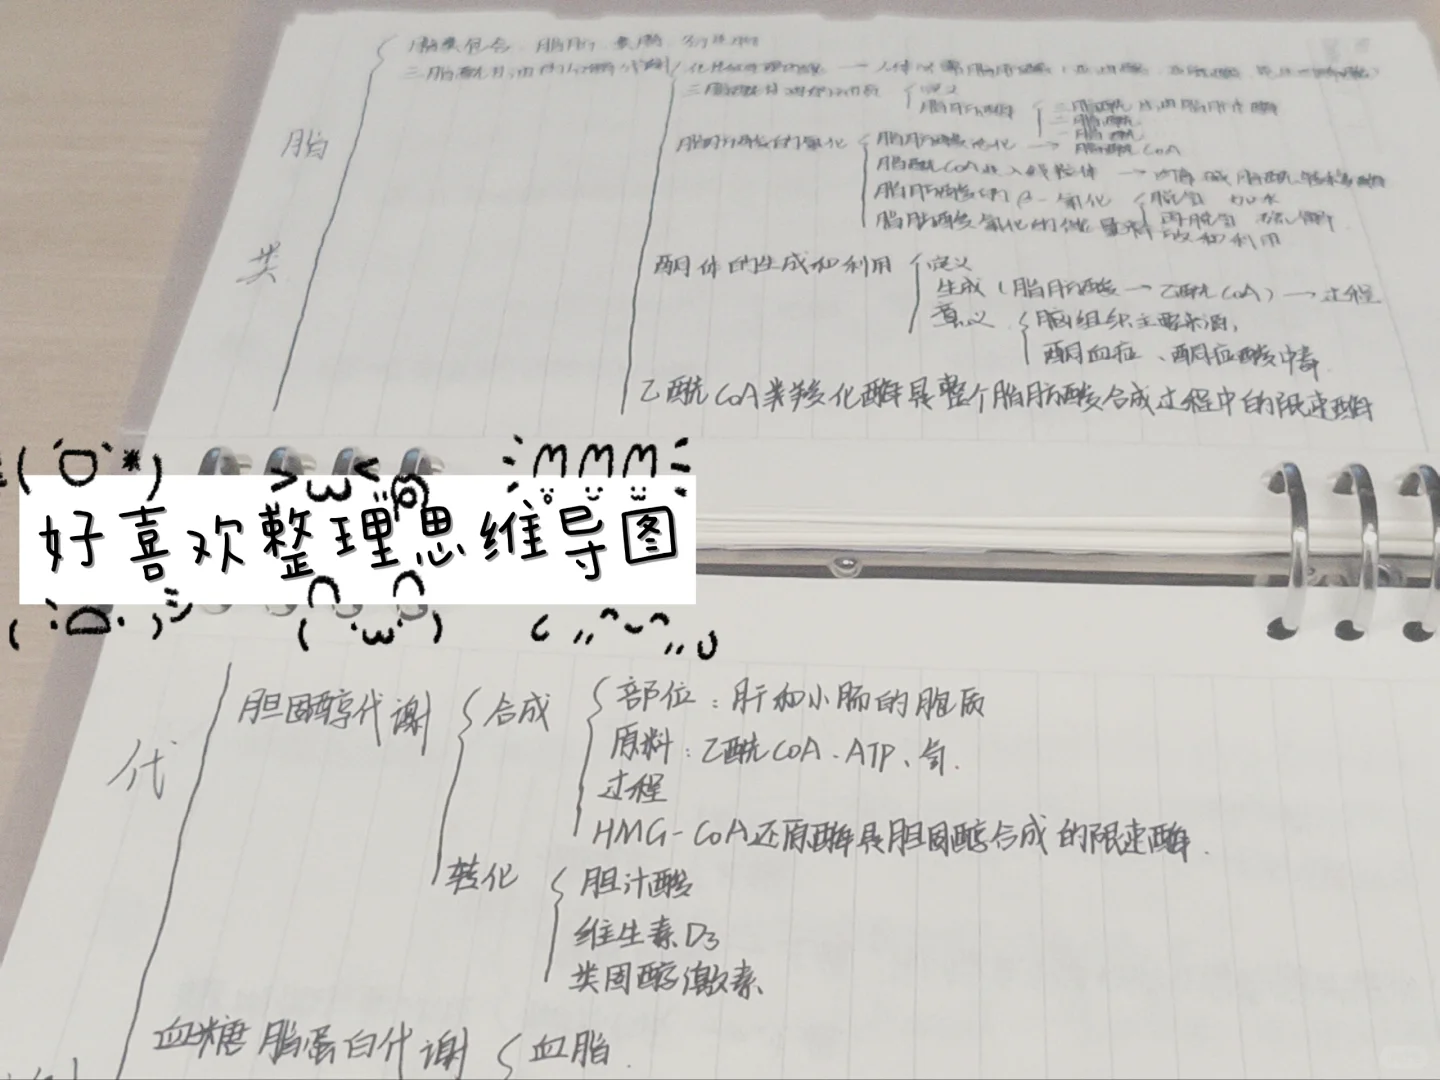 脂类包含 脂肪 类脂
三脂酰甘油的分解代谢
三脂酰甘油
定义
脂肪
三脂酰甘油脂肪酶
二脂酰
一脂酰
脂
脂肪酸的氧化
脂肪酸活化 → 脂酰CoA
脂酰CoA进入线粒体 →
脂肪酸的β-氧化
脱氢 加水
再脱氢 硫解
脂肪酸氧化的能量释放和利用
类
酮体的生成和利用
定义
生成(脂肪酸→乙酰CoA)→过程
意义
脑组织主要来源,
酮血症、酮症酸中毒
乙酰CoA类羧化酶是整个脂肪酸合成过程中的限速酶
好喜欢整理思维导图
胆固醇代谢
合成
部位:肝和小肠的胞质
原料:乙酰CoA、ATP、氢.
代
过程
HMG-CoA还原酶是胆固醇合成的限速酶.
转化
胆汁酸
维生素D3
类固醇激素
血糖脂蛋白代谢
血脂.